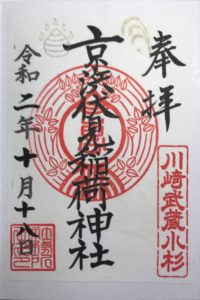 奉拝
川崎武蔵小杉
京濱伏見稲荷神社
令和二年十月十八日